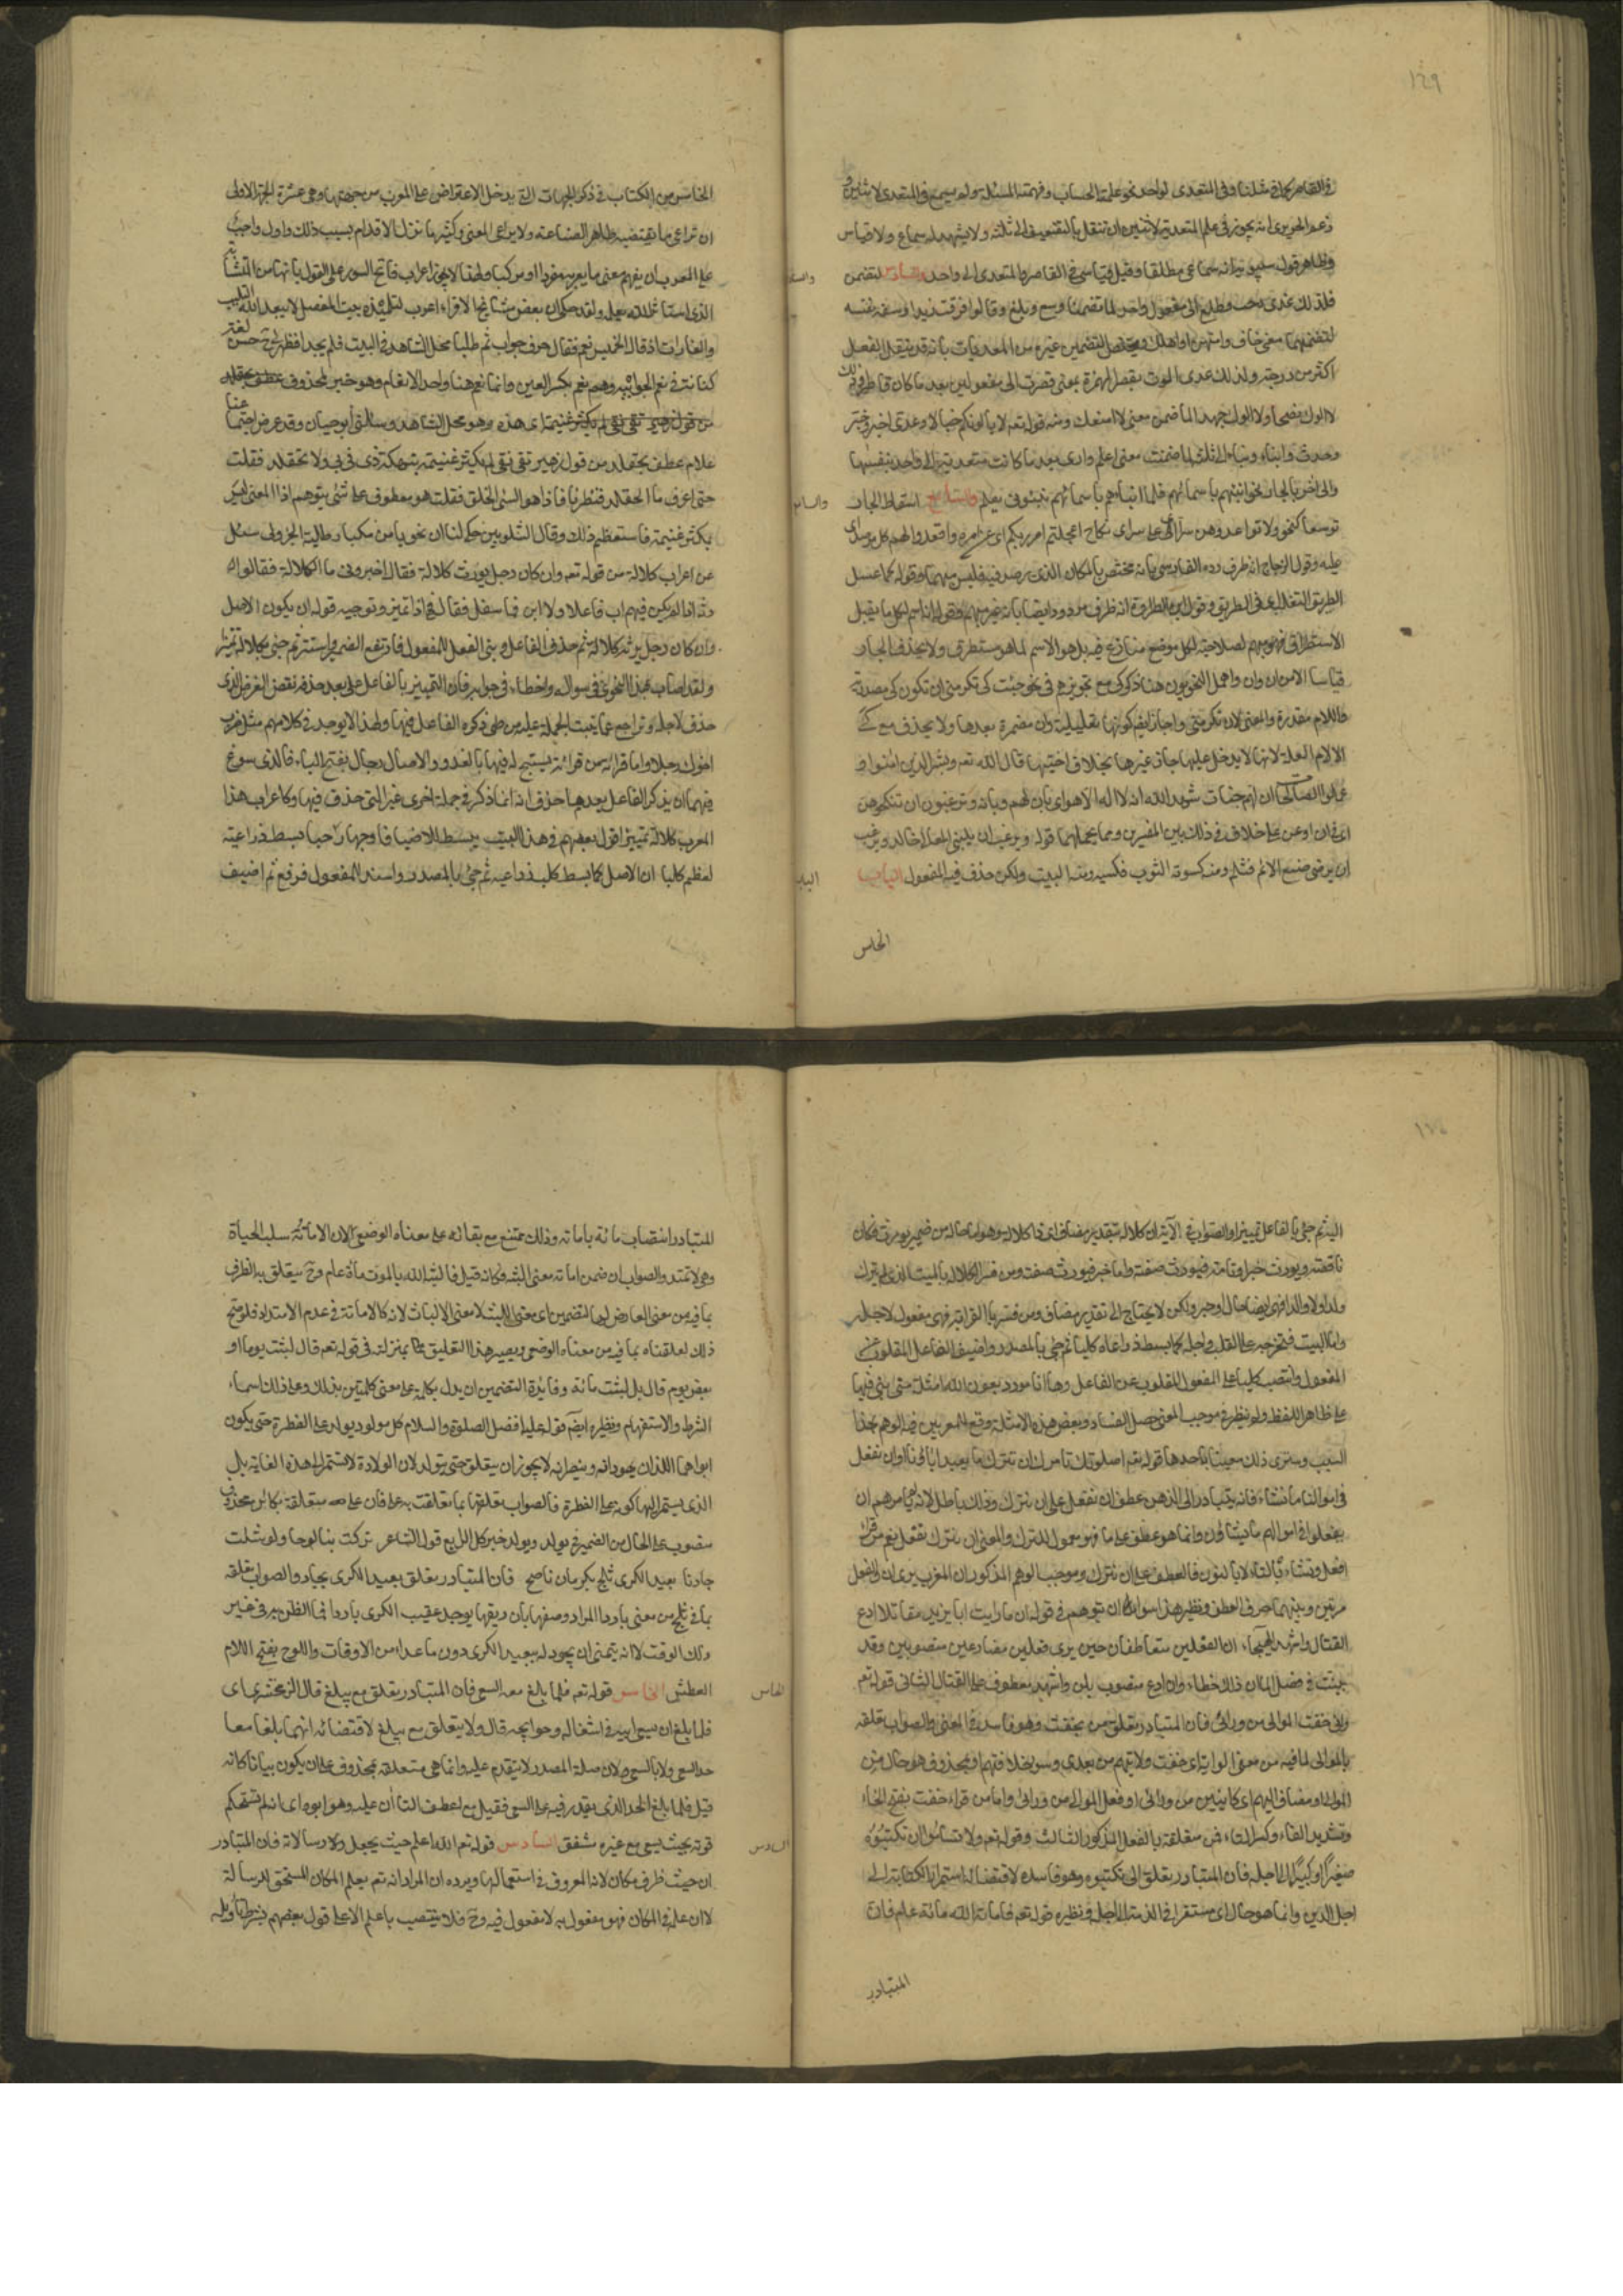 ١٤٩
في القاصر كما في مثلنا وفي المتعدى لواحد نحو علمته الحساب وفهمته المسئلة ولم يسمع في المتعدى لاثنين و
زعم الحريرى انه يجوز في علم المتعدية لاثنين ان تنقل بالتضعيف الى ثلثة ولا يشهد له سماع ولا قياس
وظاهر قول سيبويه انه سماعى مطلقا وقيل قياسى في القاصر والمتعدى الى واحد والسادس التضمن
فلذلك عدى رحب وطلع الى مفعول واحد لما تضمنا وسع وبلغ وقالوا فرقت زيدا وسفه نفسه
لتضمنهما معنى خاف وامتهن او اهلك ويختص التضمين عن غيره من المعديات بانه قد ينقل الفعل
اكثر من درجة ولذلك عدى الوت بقصر الهمزة بمعنى قصرت الى مفعولين بعد ما كان قاصرا وذلك في
لا الوك نصحا ولا الوك جهدا لما ضمن معنى لا امنعك ومنه قوله تعه لا يالونكم خبالا وعدى اخبر وخبر
وحدث وانباء ونباء الى ثلثة لما ضمنت معنى اعلم وارى بعد ما كانت متعدية الى واحد بنفسها
والى اخر بالجار نحو انبئهم باسمائهم فلما انباهم باسمائهم نبئونى بعلم والسابع اسقاط الجار
توسعا نحو ولا تواعدوهن سرا اى على سر اى نكاح اعجلتم امر ربكم اى عن امره واقعدوا لهم كل مرصد اى
عليه وقول الزجاج انه ظرف رده الفارسى بانه مختص بالمكان الذى يرصد فيه فليس مبهما وقوله كما عسل
الطريق الثعلب اى في الطريق وقول ابن الطراوة انه ظرف مردود ايضا بانه غير مبهم وقوله انه اسم لكل ما يقبل
الاستطراق فهو مبهم لصلاحيته لكل موضع منازع فيه بل هو الاسم لما هو مستطرق ولا يحذف الجار
قياسا الا من ان وان واهمل النحويون هنا ذكر كى مع تجويزهم في نحو جئت كى تكرمنى ان تكون كى مصدرية
واللام مقدرة والمعنى لان تكرمنى واجازوا ايضا كونها تعليلية وان مضمرة بعدها ولا يحذف مع كى
الا لام العلة لانها لا يدخل عليها جار غيرها بخلاف اختيها قال الله تعه وبشر الذين امنوا و
عملوا الصالحات ان لهم جنات شهد الله انه لا اله الا هو اى بان لهم وبانه وترغبون ان تنكحوهن
اى في ان او عن على خلاف في ذلك بين المفسرين ومما يحتملهما قوله ويرغب ان يبنى المعالى خالد ويرغب
ان يرضى صنيع الالائم فثلم ومنه كسوته الثوب فكسيه وشتر البيت ولكن حذف فيه المفعول الباب
الخامس
الخامس من الكتاب في ذكر الجهات التى يدخل الاعتراض على المعرب من جهتها وهى عشرة الجهة الاولى
ان يراعى ما يقتضيه ظاهر الصناعة ولا يراعى المعنى وكثيرا ما تزل الاقدام بسبب ذلك واول واجب
على المعرب ان يفهم معنى ما يعربه مفردا او مركبا ولهذا لا يجوز اعراب فواتح السور على القول بانها من المتشابه
الذى استاثر الله بعلمه ولقد حكى ان بعض مشايخ الاقراء اعرب لتلميذه بيت المفصل لا يبعد الله التلبب
والغارات اذ قال الخميس نعم فقال حرف جواب ثم طلبا محل الشاهد في البيت فلم يجداه فظهر لى ح حسن لغة
كنانة في نعم الجوابية وهم نعم بكسر العين وانما نعم هنا واحد الانعام وهو خبر لمحذوف
اى هذه وهو محل الشاهد وسالنى ابو حيان وقد عرض اجتماعنا
علام عطف بحقلد من قول زهير تقى نقى لم يكثر غنيمة بنهكة ذى قربى ولا بحقلد فقلت
حتى اعرف ما الحقلد فنظرنا فاذا هو السئ الخلق فقلت هو معطوف على شئ متوهم اذ المعنى ليس
بمكثر غنيمة فاستعظم ذلك وقال الشلوبين حكى لنا ان نحويا من كبار طلبة الجزولى سئل
عن اعراب كلالة من قوله تعه وان كان رجل يورث كلالة فقال اخبرونى ما الكلالة فقالوا له
ورثة اذا لم يكن فيهم اب فما علا ولا ابن فما سفل فقال فهى اذا تمييز وتوجيه قوله ان يكون الاصل
وان كان رجل يرثه كلالة ثم حذف الفاعل وبنى الفعل للمفعول فارتفع الضمير واستتر ثم جئ بكلالة تمييزا
ولقد اصاب هذا النحوى في سؤاله واخطاء في جوابه فان التمييز بالفاعل بعد حذفه نقض للغرض الذى
حذف لاجله وتراجع عما بنيت الجملة عليه من طى ذكر الفاعل فيها ولهذا لا يوجد في كلامهم مثل ضرب
اخوك رجلا واما قراءة من قراءة يسبح له فيها بالغدو والاصال رجال بفتح الباء فالذى سوغ
فيها ان يذكر الفاعل بعد ما حذف انه انما ذكر في جملة اخرى غير التى حذف فيها وكاعراب هذا
المعرب كلالة تمييزا قول بعضهم في هذا البيت يبسط للاضياف وجها رحبا بسط ذراعيه
لعظم كلبا ان الاصل كما بسط كلب ذراعيه ثم جئ بالمصدر واسند للمفعول فرفع ثم اضيف
اليه ثم جئ بالفاعل تمييزا والصواب في الآية ان كلالة بتقدير مضاف اى ذا كلالة وهو اما حال من ضمير يورث فكان
ناقصة ويورث خبر او تامة فيورث صفة واما خبر فيورث صفة ومن فسر الكلالة بالميت الذى لم يترك
ولدا ولا والدا فهى ايضا حال او خبر ولكن لا يحتاج الى تقدير مضاف ومن فسرها بالقرابة فهى مفعول لاجله
واما البيت فتخريجه على القلب واصله كما بسط ذراعاه كلبا ثم جئ بالمصدر واضيف للفاعل المقلوب عن
المفعول وانتصب كلبا على المفعول المقلوب عن الفاعل وها انا مورد بعون الله امثلة متى بنى فيها
على ظاهر اللفظ ولم ينظر في موجب المعنى حصل الفساد وبعض هذه الامثلة وقع للمعربين فيه الوهم بهذا
السبب وسترى ذلك معينا فاحدها قوله تعه اصلوتك تامرك ان نترك ما يعبد اباؤنا او ان نفعل
في اموالنا ما نشاء فانه يتبادر الى الذهن عطف ان نفعل على ان نترك وذلك باطل لانه لم يامرهم ان
يفعلوا في اموالهم ما يشاؤن وانما هو عطف على ما فهو معمول للترك والمعنى ان نترك ان نفعل نعم من قراء
تفعل وتشاء بالتاء لا بالنون فالعطف على ان نترك وموجب الوهم المذكور ان المعرب يرى ان والفعل
مرتين وبينهما حرف العطف ونظير هذا سواء ان يتوهم في قوله لن ما رايت ابا يزيد مقاتلا ادع
القتال واشهد الهيجاء ان الفعلين متعاطفان حين يرى فعلين مضارعين منصوبين وقد
بينت في فصل لما ان ذلك خطاء وان ادع منصوب بلن واشهد معطوف على القتال الثانى قوله تعه
وانى خفت الموالى من ورائى فان المتبادر تعلق من بخفت وهو فاسد في المعنى والصواب تعلقه
بالموالى لما فيه من معنى الولاية اى خفت ولايتهم من بعدى وسوء خلافتهم او بمحذوف هو حال من
الموالى او مضاف اليهم اى كائنين من ورائى او فعل الموالى من ورائى واما من قراء خفت بفتح الخاء
وتشديد الفاء وكسر التاء فمن متعلقة بالفعل المذكور الثالث وقوله تعه ولا تسأموا ان تكتبوه
صغيرا او كبيرا الى اجله فان المتبادر تعلق الى بتكتبوه وهو فاسد لاقتضائه استمرار الكتابة الى
اجل الدين وانما هو حال اى مستقرا في الذمة الى اجله ونظيره قوله تعه فاماته الله مائة عام فان
المتبادر
المتبادر انتصاب مائة باماته وذلك ممتنع مع بقائه على معناه الوضعى لان الاماتة سلب الحياة
وهى لا تمتد والصواب ان ضمن اماته معنى البثه فكانه قيل فالبثه الله بالموت مائة عام وح يتعلق به الظرف
بما فيه من معنى العارض له بالتضمين اى معنى اللبث لا معنى الالباث لانه كالاماتة في عدم الامتداد فلو صح
ذلك لعلقناه بما فيه من معناه الوضعى ويصير هذا التعليق بمنزلته في قوله تعه قال لبثت يوما او
بعض يوم قال بل لبثت مائة وفايدة التضمين ان يدل بكلمة على معنى كلمتين يدلك على ذلك اسماء
الشرط والاستفهام ونظيره ايضا قوله عليه افضل الصلوة والسلام كل مولود يولد على الفطرة حتى يكون
ابواهما اللذان يهودانه وينصرانه لا يجوز ان يتعلق حتى بيولد لان الولادة لا تستمر الى هذه الغاية بل
الذى يستمر اليها كونه على الفطرة فالصواب تعلقها بما تعلقت به على فان على متعلقة بكائن محذوف
منصوب على الحال من الضمير في يولد ويولد خبر كل الرابع قول الشاعر تركت بنا لوحا ولو شئت
جادنا بعيد الكرى ثلج بكرمان ناصح فان المتبادر تعلق بعيد الكرى بجاد والصواب تعلقه
بما في ثلج من معنى بارد اذ المراد وصفها بان ريقها يوجد عقيب الكرى باردا فما الظن به في غير
ذلك الوقت لا انه يتمنى ان يجود له بعيد الكرى دون ما عداه من الاوقات واللوح بفتح اللام
العطش الخامس قوله تعه فلما بلغ معه السعى فان المتبادر تعلق مع ببلغ قال الزمخشرى اى
فلما بلغ ان يسعى مع ابيه في اشغاله وحوايجه قال ولا يتعلق مع ببلغ لاقتضائه انهما بلغا معا
حد السعى ولا بالسعى لان صلة المصدر لا يتقدم عليه وانما هى متعلقة بمحذوف على ان يكون بيانا كانه
قيل فلما بلغ الحد الذى يقدر فيه على السعى فقيل مع من فقيل مع اعطف الناس عليه وهو ابوه اى انه لم تستحكم
قوته بحيث يسعى مع غيره مشفق السادس قوله تعه الله اعلم حيث يجعل رسالاته فان المتبادر
ان حيث ظرف مكان لانه المعروف في استعمالها ويرده ان المراد انه تعه يعلم المكان المستحق للرسالة
لا ان علمه في المكان فهو مفعول به لا مفعول فيه وح فلا ينتصب باعلم الا على قول بعضهم بشرط تاويله